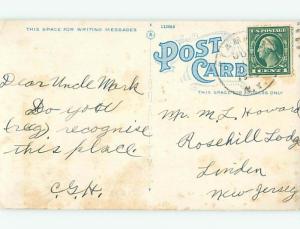 THIS SPACE FOR WRITING MESSAGES
POST
CARD
U.S. POSTAGE
1 CENT 1
THIS SPACE FOR ADDRESS ONLY
Dear Uncle Mark
Do you
(reg) recognise
this place
C.G.H.
Mr. M. L. Howard
Rosehill Lodge
Linden
New Jersey